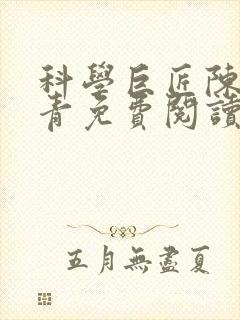 科學巨匠陳
青免費閱讀
五月無盡夏